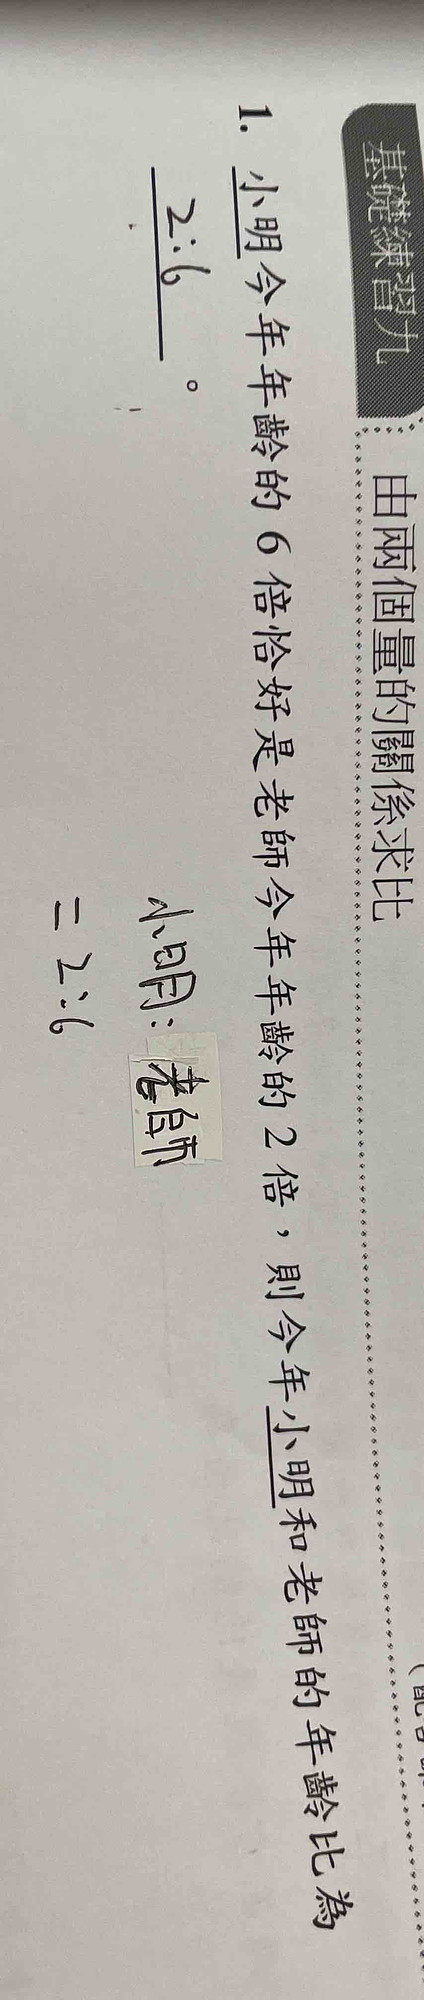 基礎練習九 由兩個量的關係求比
1. 小明今年年齡的6倍恰好是老師今年年齡的2倍，則今年小明和老師的年齡比為
2:6 。
小明:老師
=2:6